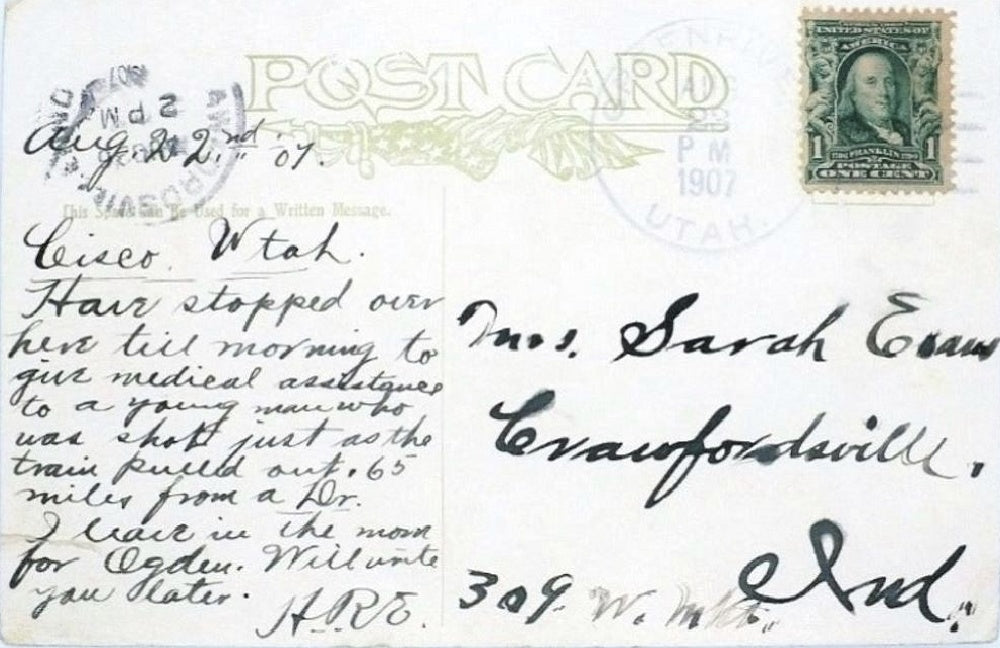 POST CARD
UNITED STATES OF
AMERICA
1 FRANKLIN 1
POSTAGE
ONE CENT
UTAH.
AUG
23
P M
1907
CRAWFORDSVILLE
2 PM
1907
Aug. 22.nd '07.
This Space Can Be Used for a Written Message.
Cisco. Utah.
Have stopped over
here till morning to
give medical assistance
to a young man who
was shot just as the
train pulled out. 65
miles from a Dr.
I leave in the morn
for Ogden. Will write
you later.
H.R.E.
Mrs. Sarah Evans
Crawfordsville,
Ind.
309 W. Mkt.